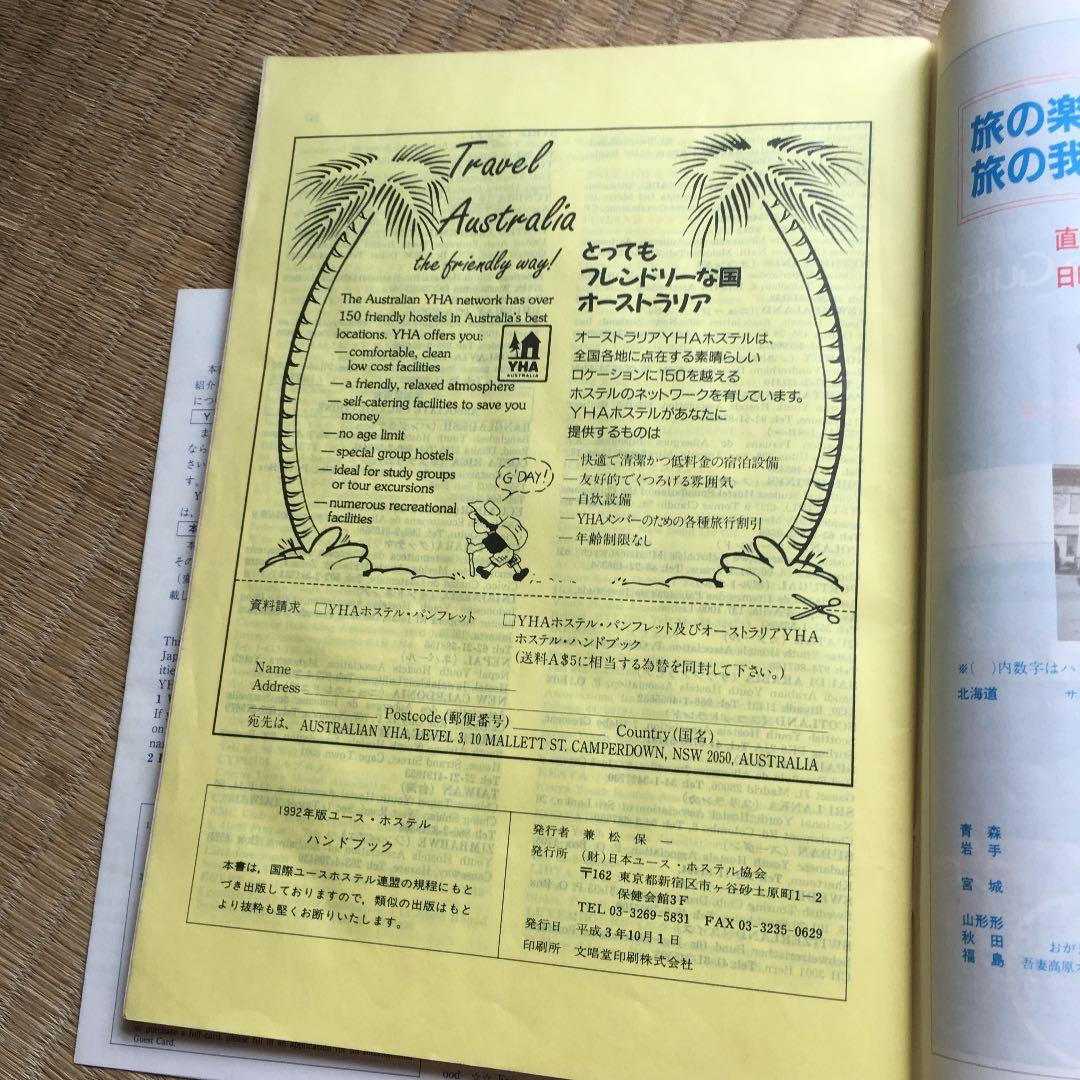 Travel
Australia
the friendly way!
The Australian YHA network has over
150 friendly hostels in Australia's best
locations. YHA offers you:
—comfortable, clean
low cost facilities
—a friendly, relaxed atmosphere
—self-catering facilities to save you
money
—no age limit
—special group hostels
—ideal for study groups
or tour excursions
—numerous recreational
facilities
YHA
AUSTRALIA
G'DAY!
とっても
フレンドリーな国
オーストラリア
オーストラリアYHAホステルは、
全国各地に点在する素晴らしい
ロケーションに150を越える
ホステルのネットワークを有しています。
YHAホステルがあなたに
提供するものは
—快適で清潔かつ低料金の宿泊設備
—友好的でくつろげる雰囲気
—自炊設備
—YHAメンバーのための各種旅行割引
—年齢制限なし
資料請求 □YHAホステル・パンフレット
□YHAホステル・パンフレット及びオーストラリアYHA
ホステル・ハンドブック
(送料A$5に相当する為替を同封して下さい。)
Name
Address
Postcode(郵便番号) Country(国名)
宛先は、AUSTRALIAN YHA, LEVEL 3, 10 MALLETT ST. CAMPERDOWN, NSW 2050, AUSTRALIA
1992年版ユース・ホステル
ハンドブック
本書は，国際ユースホステル連盟の規程にもと
づき出版しておりますので，類似の出版はもと
より抜粋も堅くお断りいたします。
発行者 兼松保一
発行所 (財)日本ユース・ホステル協会
〒162 東京都新宿区市ヶ谷砂土原町1-2
保健会館3F
TEL 03-3269-5831 FAX 03-3235-0629
発行日 平成3年10月1日
印刷所 文唱堂印刷株式会社
旅の楽
旅の我
直
※( )内数字はハ
北海道 サ
青森
岩手
宮城
山形形
秋田 おが
福島 吾妻高原ス
or purchase a full card, please fill in an application for an
Guest Card.